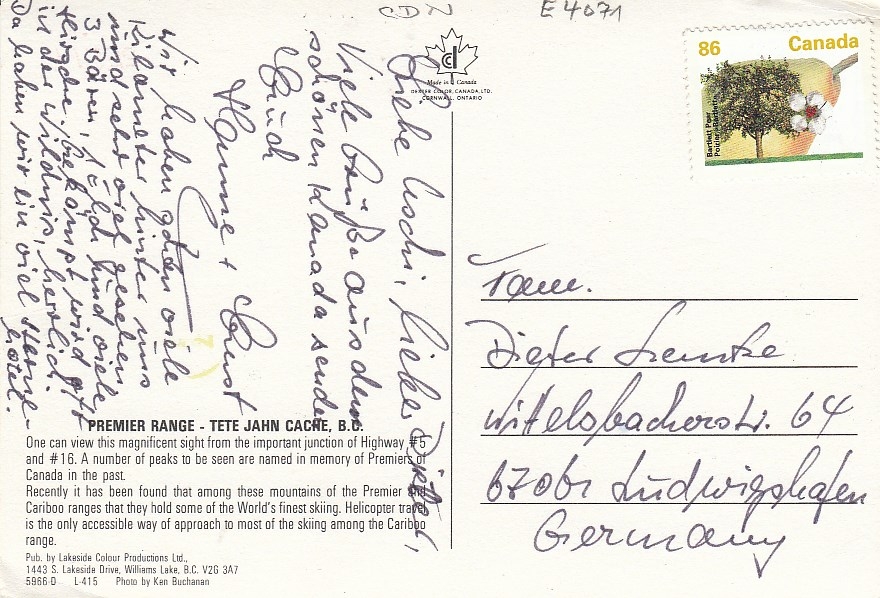 E4071
86 Canada
Bartlett Pear
Made in Canada
DEXTER COLOR, CANADA, LTD.
CORNWALL, ONTARIO
Liebe Uschi, lieber Dieter,
Viele Grüße aus dem
schönen Kanada senden
Euch
Hanne + Ernst
Wir haben schon viele
Kilometer hinter uns
und sehr viel gesehen
3 Bären, Elch und viele
Hirsche. Gekämpft wird oft
in der Wildnis, herrlich.
Da haben wir ein viel Sterne-
hotel.
Fam.
Dieter
Wittelsbacherstr. 64
67061 Ludwigshafen
Germany
PREMIER RANGE - TETE JAHN CACHE, B.C.
One can view this magnificent sight from the important junction of Highway #5
and #16. A number of peaks to be seen are named in memory of Premiers of
Canada in the past.
Recently it has been found that among these mountains of the Premier and
Cariboo ranges that they hold some of the World's finest skiing. Helicopter travel
is the only accessible way of approach to most of the skiing among the Cariboo
range.
Pub. by Lakeside Colour Productions Ltd.,
1443 S. Lakeside Drive, Williams Lake, B.C. V2G 3A7
5966-D L-415 Photo by Ken Buchanan